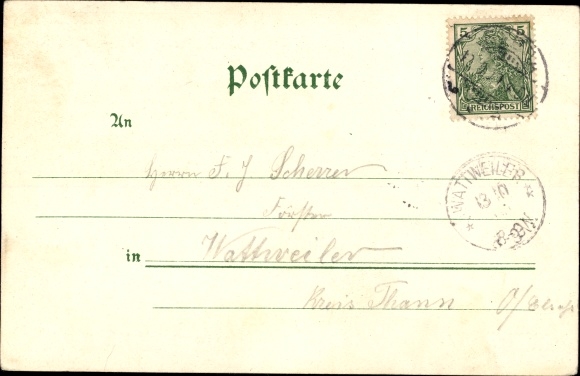 5 5
REICHSPOST
Postkarte
An
Herrn F. J. Scherrer
Förster
WATTWEILER
13 10
8-9 N.
in Wattweiler
Kreis Thann O/Elsaß